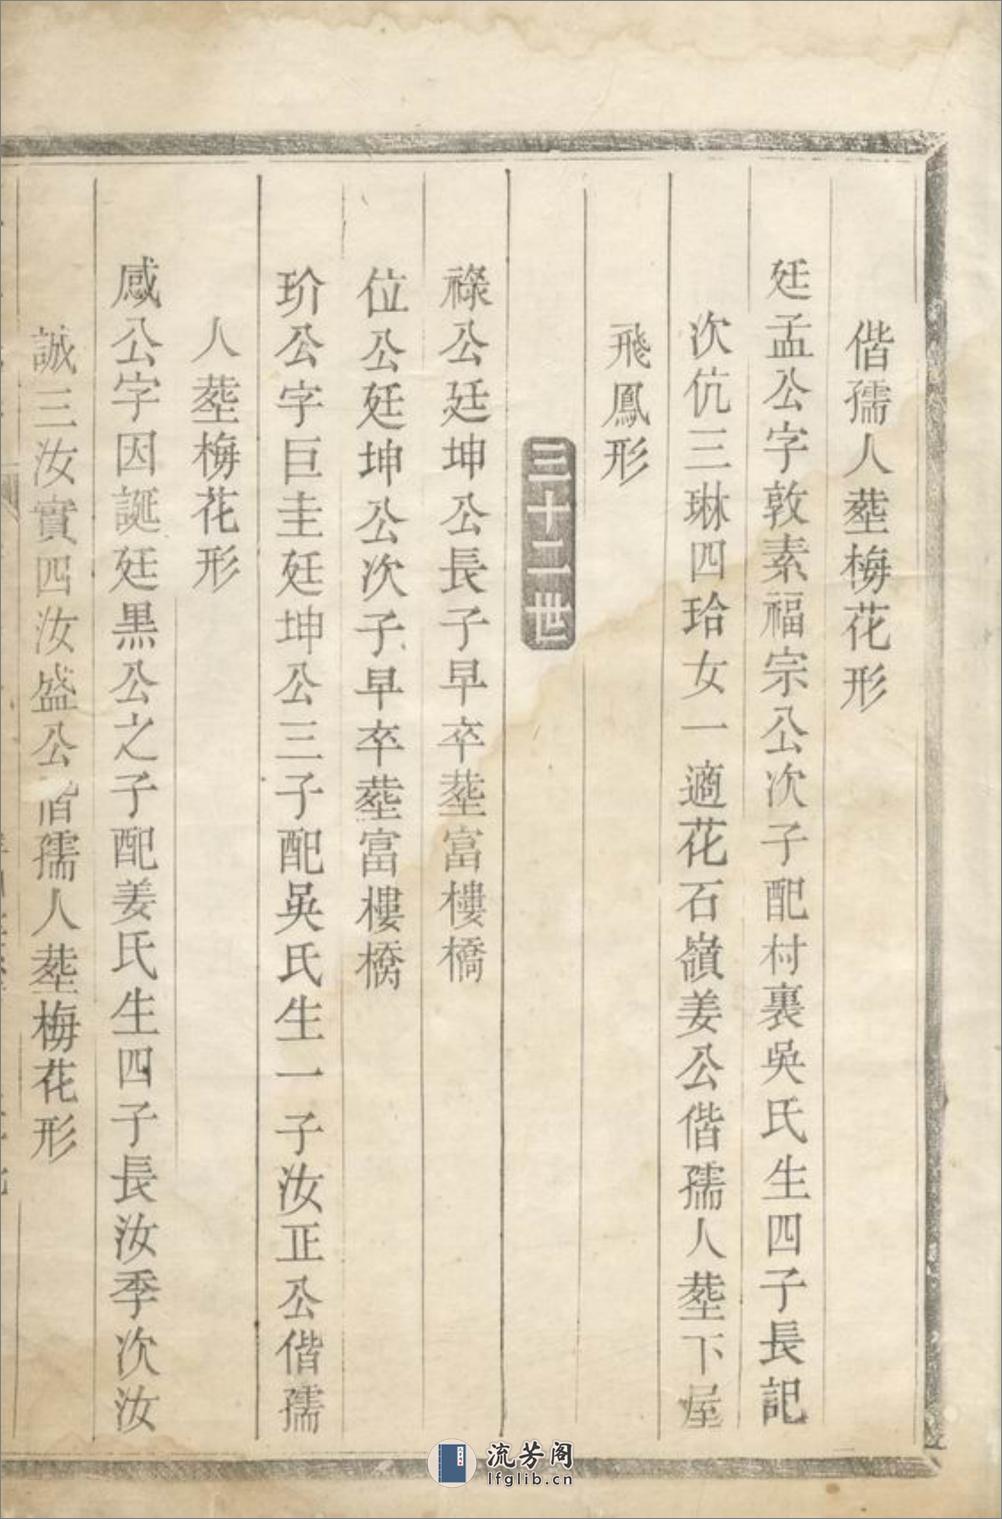 偕孺人塟梅花形
廷孟公字敦素福宗公次子配村裏吳氏生四子長記
次伉三琳四珆女一適花石嶺姜公偕孺人塟下屋
飛鳳形
三十二世
祿公廷坤公長子早卒塟富樓橋
位公廷坤公次子早卒塟富樓橋
玠公字巨圭廷坤公三子配吳氏生一子汝正公偕孺
人塟梅花形
感公字因誕廷黒公之子配姜氏生四子長汝季次汝
誠三汝實四汝盛公偕孺人塟梅花形
流芳阁
lfglib.cn